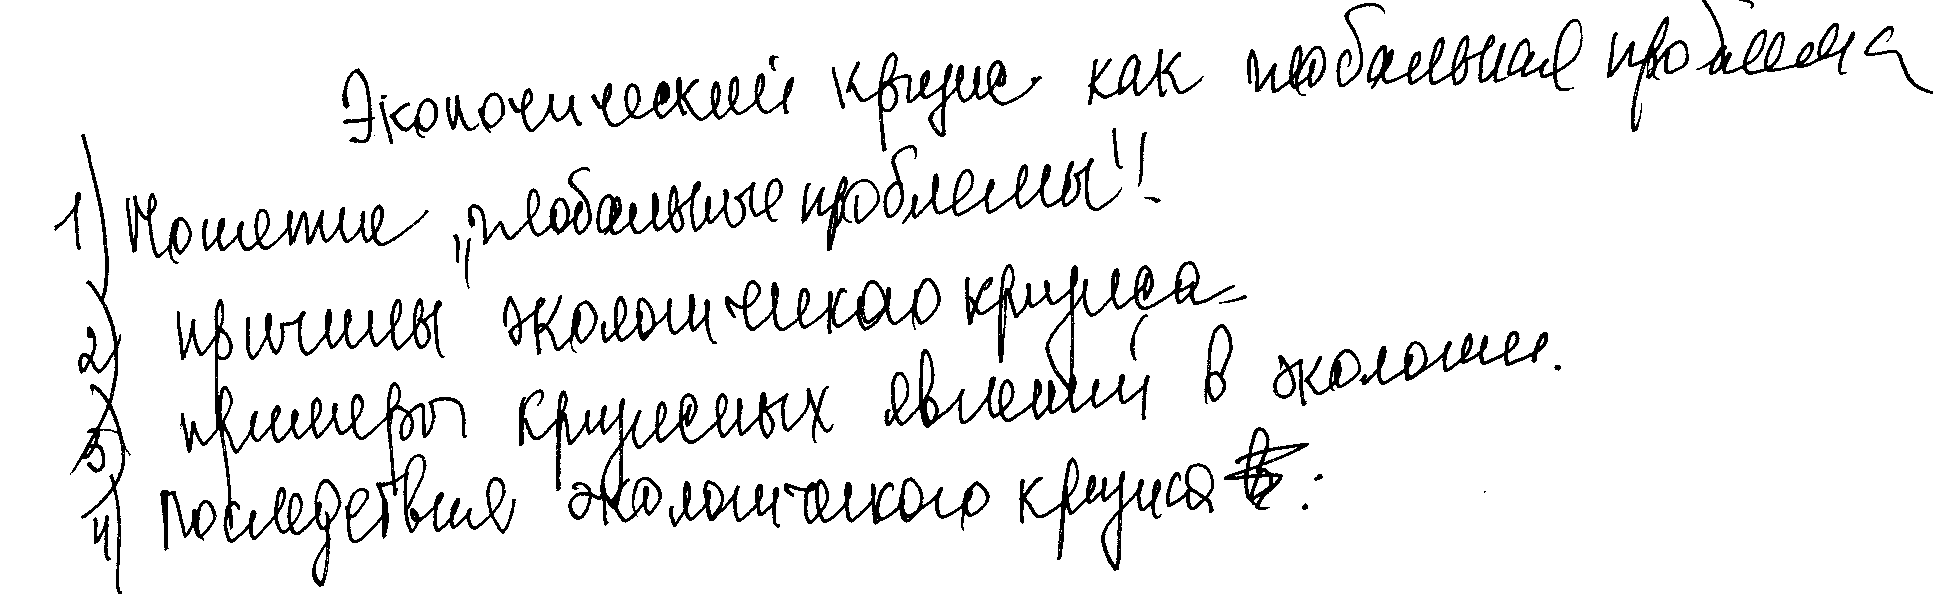 Экологический кризис как глобальная проблема
1) Понятие "глобальные проблемы".
2) причины экологического кризиса
3) примеры кризисных явлений в экологии.
4) Последствия экологического кризиса: